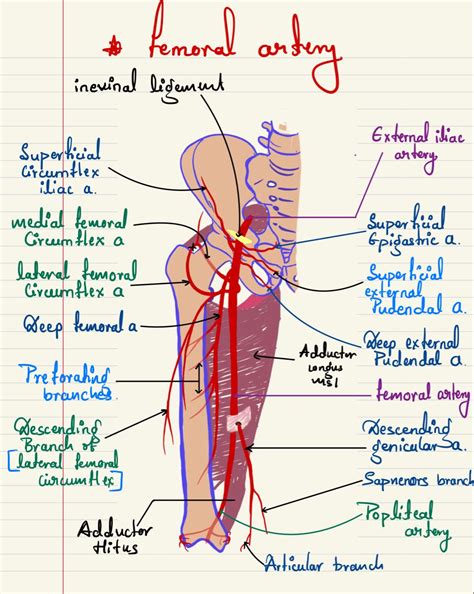 * femoral artery
inevinal ligement
External iliac
artery
Superficial
Circumflex
iliac a.
medial femoral
Circumflex a
Superficial
Epigastric a.
lateral femoral
Circumflex a.
Superficial
external
Pudendal a.
Deep femoral a
Deep external
Pudendal a.
Adductor
longus
msl
Preforating
branches
femoral artery
Descending
Branch of
[lateral femoral
circumflex]
Descending
genicular a.
Sapnenors branch
Adductor
Hitus
Popliteal
artery
Articular branch